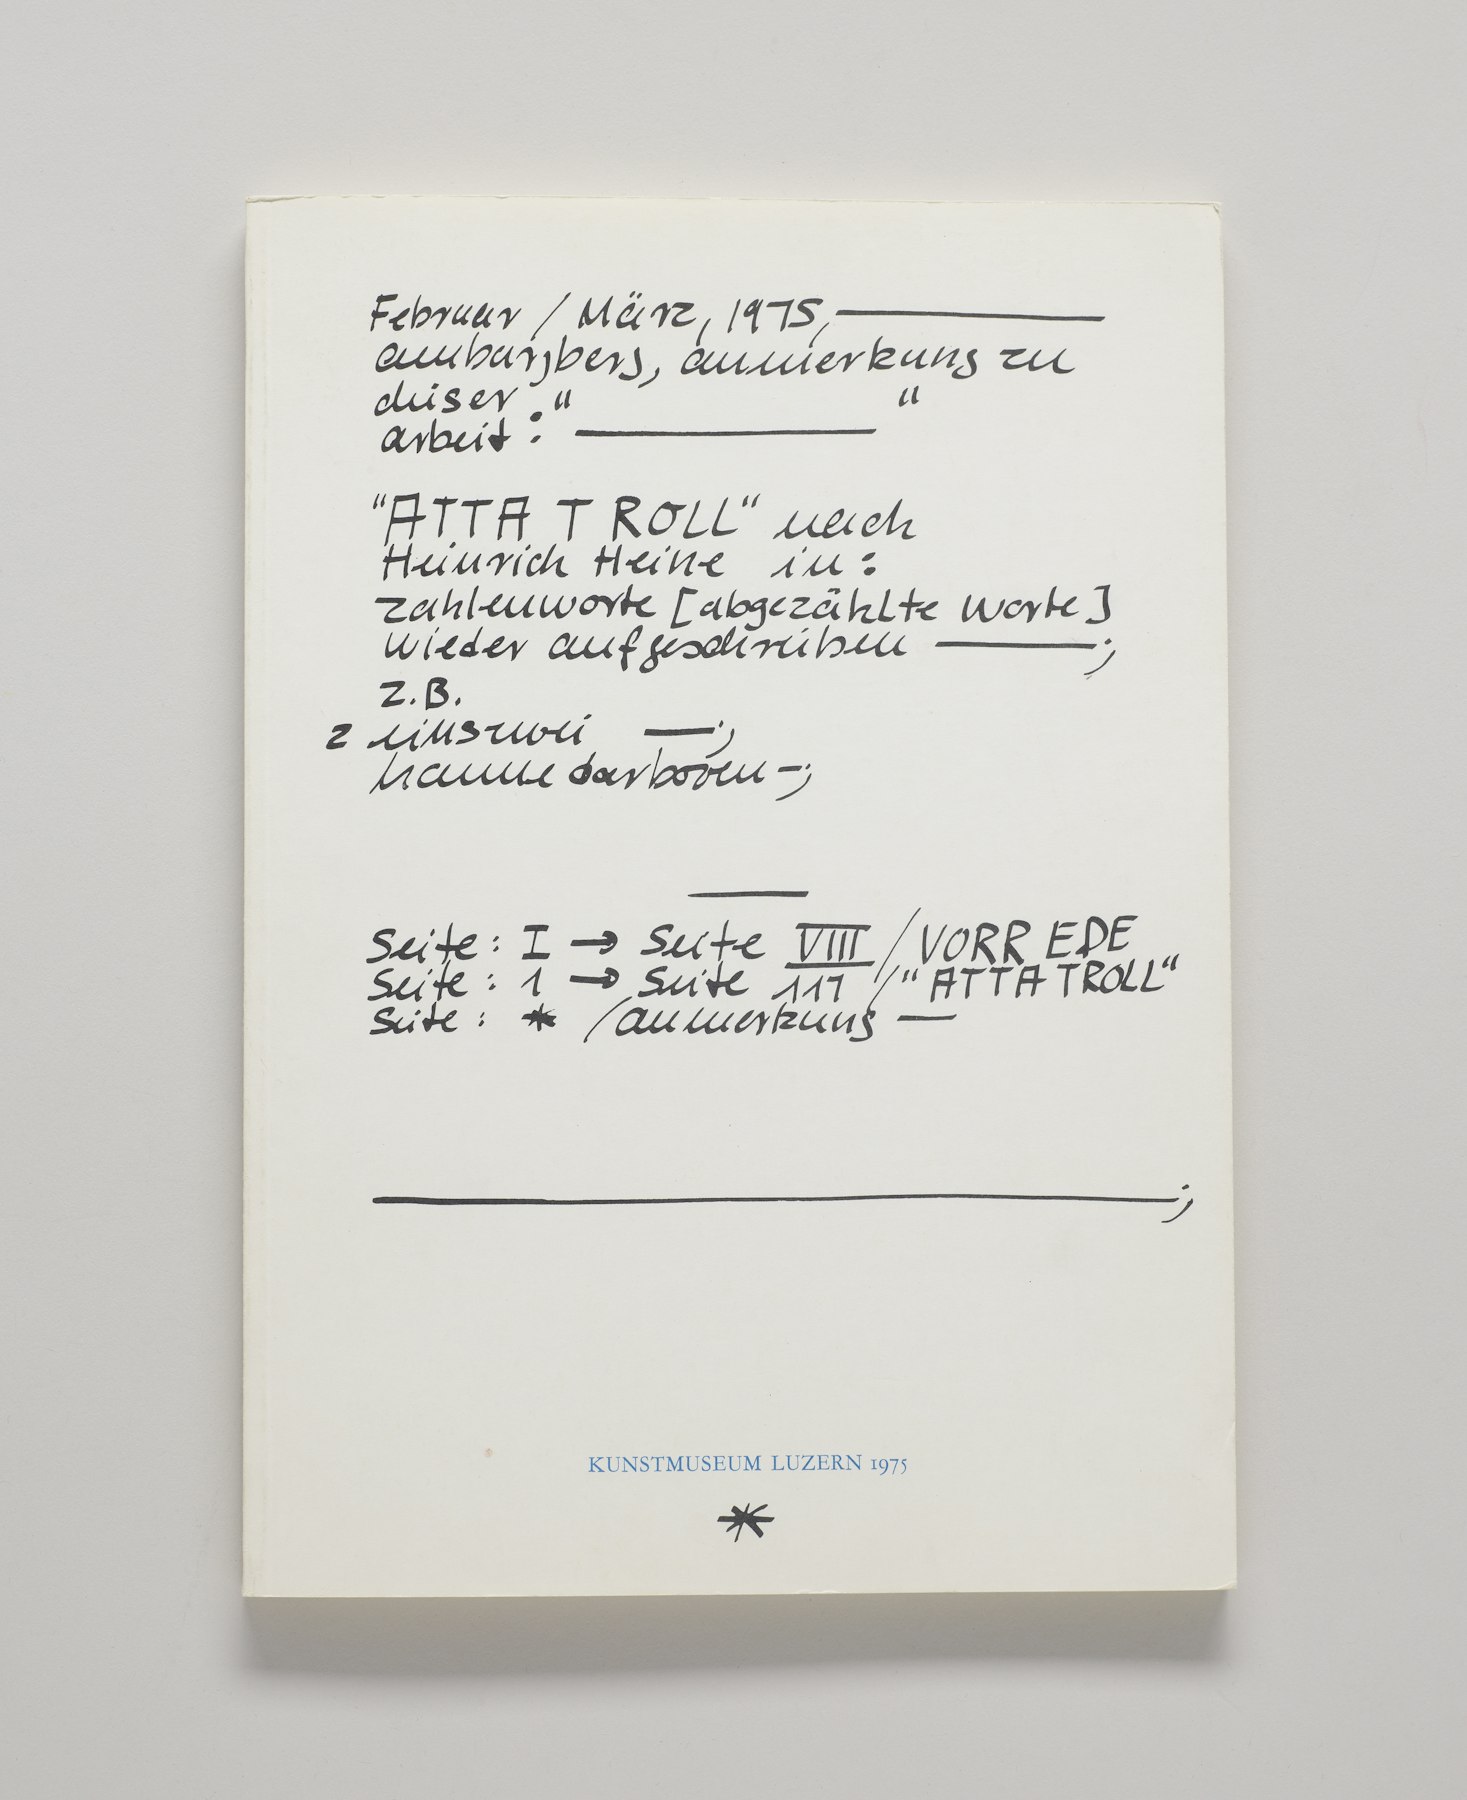 Februar / März, 1975, ————
amburgberg, anmerkung zu
dieser " "
arbeit : ————
"ATTA TROLL" nach
Heinrich Heine in:
zahlenworte [abgezählte worte]
wieder aufgeschrieben ———;
z.B.
2 einszwei —;
hanne darboven -;
—
Seite: I → Seite VIII / VORREDE
Seite: 1 → Seite 117 / "ATTA TROLL"
Seite: * / anmerkung —
————————;
KUNSTMUSEUM LUZERN 1975
*